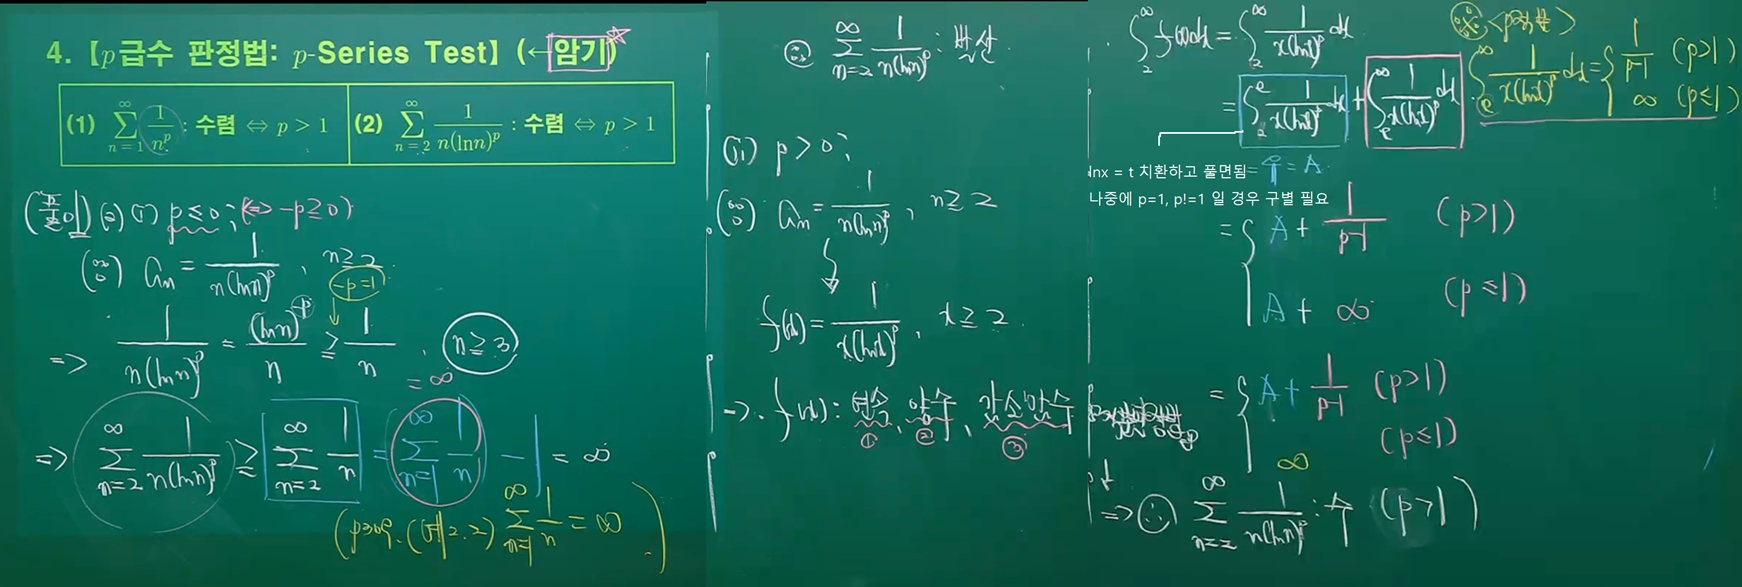 4.【p급수 판정법: p-Series Test】(←암기)☆
(1) \sum_{n=1}^{∞} \frac{1}{n^p} : 수렴 ⇔ p > 1
(2) \sum_{n=2}^{∞} \frac{1}{n(lnn)^p} : 수렴 ⇔ p > 1
(2) (i) p ≤ 0; (⇔ -p ≥ 0)
a_n = \frac{1}{n(ln n)^p}, n ≥ 2
-p=1
⇒ \frac{1}{n(ln n)^p} = \frac{(ln n)^{-p}}{n} ≥ \frac{1}{n}, n ≥ 3
= ∞
⇒ \sum_{n=2}^{∞} \frac{1}{n(ln n)^p} ≥ \sum_{n=2}^{∞} \frac{1}{n} = \sum_{n=1}^{∞} \frac{1}{n} - 1 = ∞
\sum_{n=1}^{∞} \frac{1}{n} = ∞)
∴ \sum_{n=2}^{∞} \frac{1}{n(ln n)^p} : 발산
(ii) p > 0;
a_n = \frac{1}{n(ln n)^p}, n ≥ 2
f(x) = \frac{1}{x(ln x)^p}, x ≥ 2
⇒ f(x) : 연속, 양수, 감소함수
① ② ③
\int_2^∞ f(x)dx = \int_2^∞ \frac{1}{x(ln x)^p} dx
= \int_2^e \frac{1}{x(ln x)^p} dx + \int_e^∞ \frac{1}{x(ln x)^p} dx
lnx = t 치환하고 풀면됨
= 수 = A
나중에 p=1, p!=1 일 경우 구별 필요
= { A + \frac{1}{p-1} (p>1)
A + ∞ (p≤1)
= { A + \frac{1}{p-1} (p>1)
∞ (p≤1)
⇒ ∴ \sum_{n=2}^{∞} \frac{1}{n(ln n)^p} : 수 (p>1)
※ <p적분>
\int_e^∞ \frac{1}{x(ln x)^p} dx = { \frac{1}{p-1} (p>1)
∞ (p≤1)